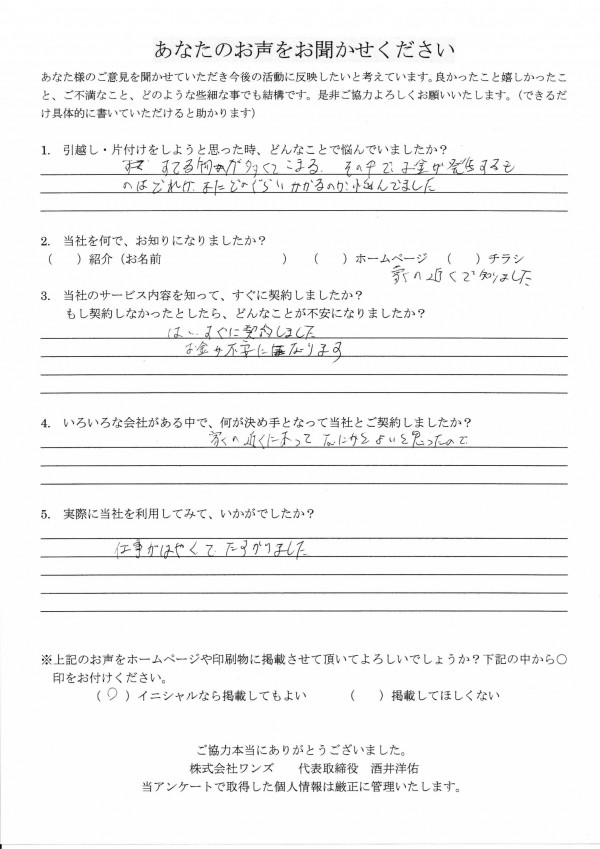 あなたのお声をお聞かせください
あなた様のご意見を聞かせていただき今後の活動に反映したいと考えています。良かったこと嬉しかったこ
と、ご不満なこと、どのような些細な事でも結構です。是非ご協力よろしくお願いいたします。（できるだ
け具体的に書いていただけると助かります）
1. 引越し・片付けをしようと思った時、どんなことで悩んでいましたか？
すてる物が多くてこまる。その中で、お金が発生するも
のはどれか、またどのぐらいかかるのか、悩んでました
2. 当社を何で、お知りになりましたか？
（　）紹介（お名前　　　　　　　　　　）　（　）ホームページ　（　）チラシ
家の近くで知りました
3. 当社のサービス内容を知って、すぐに契約しましたか？
もし契約しなかったとしたら、どんなことが不安になりましたか？
はい、すぐに契約しました
お金が不安になります
4. いろいろな会社がある中で、何が決め手となって当社とご契約しましたか？
家の近くにあって なにかとよいと思ったので
5. 実際に当社を利用してみて、いかがでしたか？
仕事がはやくて、たすかりました
※上記のお声をホームページや印刷物に掲載させて頂いてよろしいでしょうか？下記の中から○
印をお付けください。
（○）イニシャルなら掲載してもよい　　（　）掲載してほしくない
ご協力本当にありがとうございました。
株式会社ワンズ　　代表取締役　酒井洋佑
当アンケートで取得した個人情報は厳正に管理いたします。